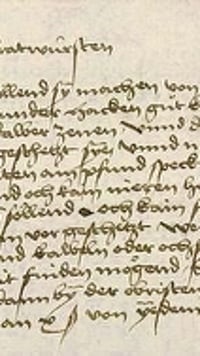 ratwürsten
ollend sy machen von
under hacken gůt b
alber zenen vnnd d
geschetzt syg vnnd n
ten am pfund speck
nd och kain meren h
söllend och kain s
m vor geschetzt we
nd kalbeln oder ochs
it finden mögend s
dann by der obristen
an x ß von yedem